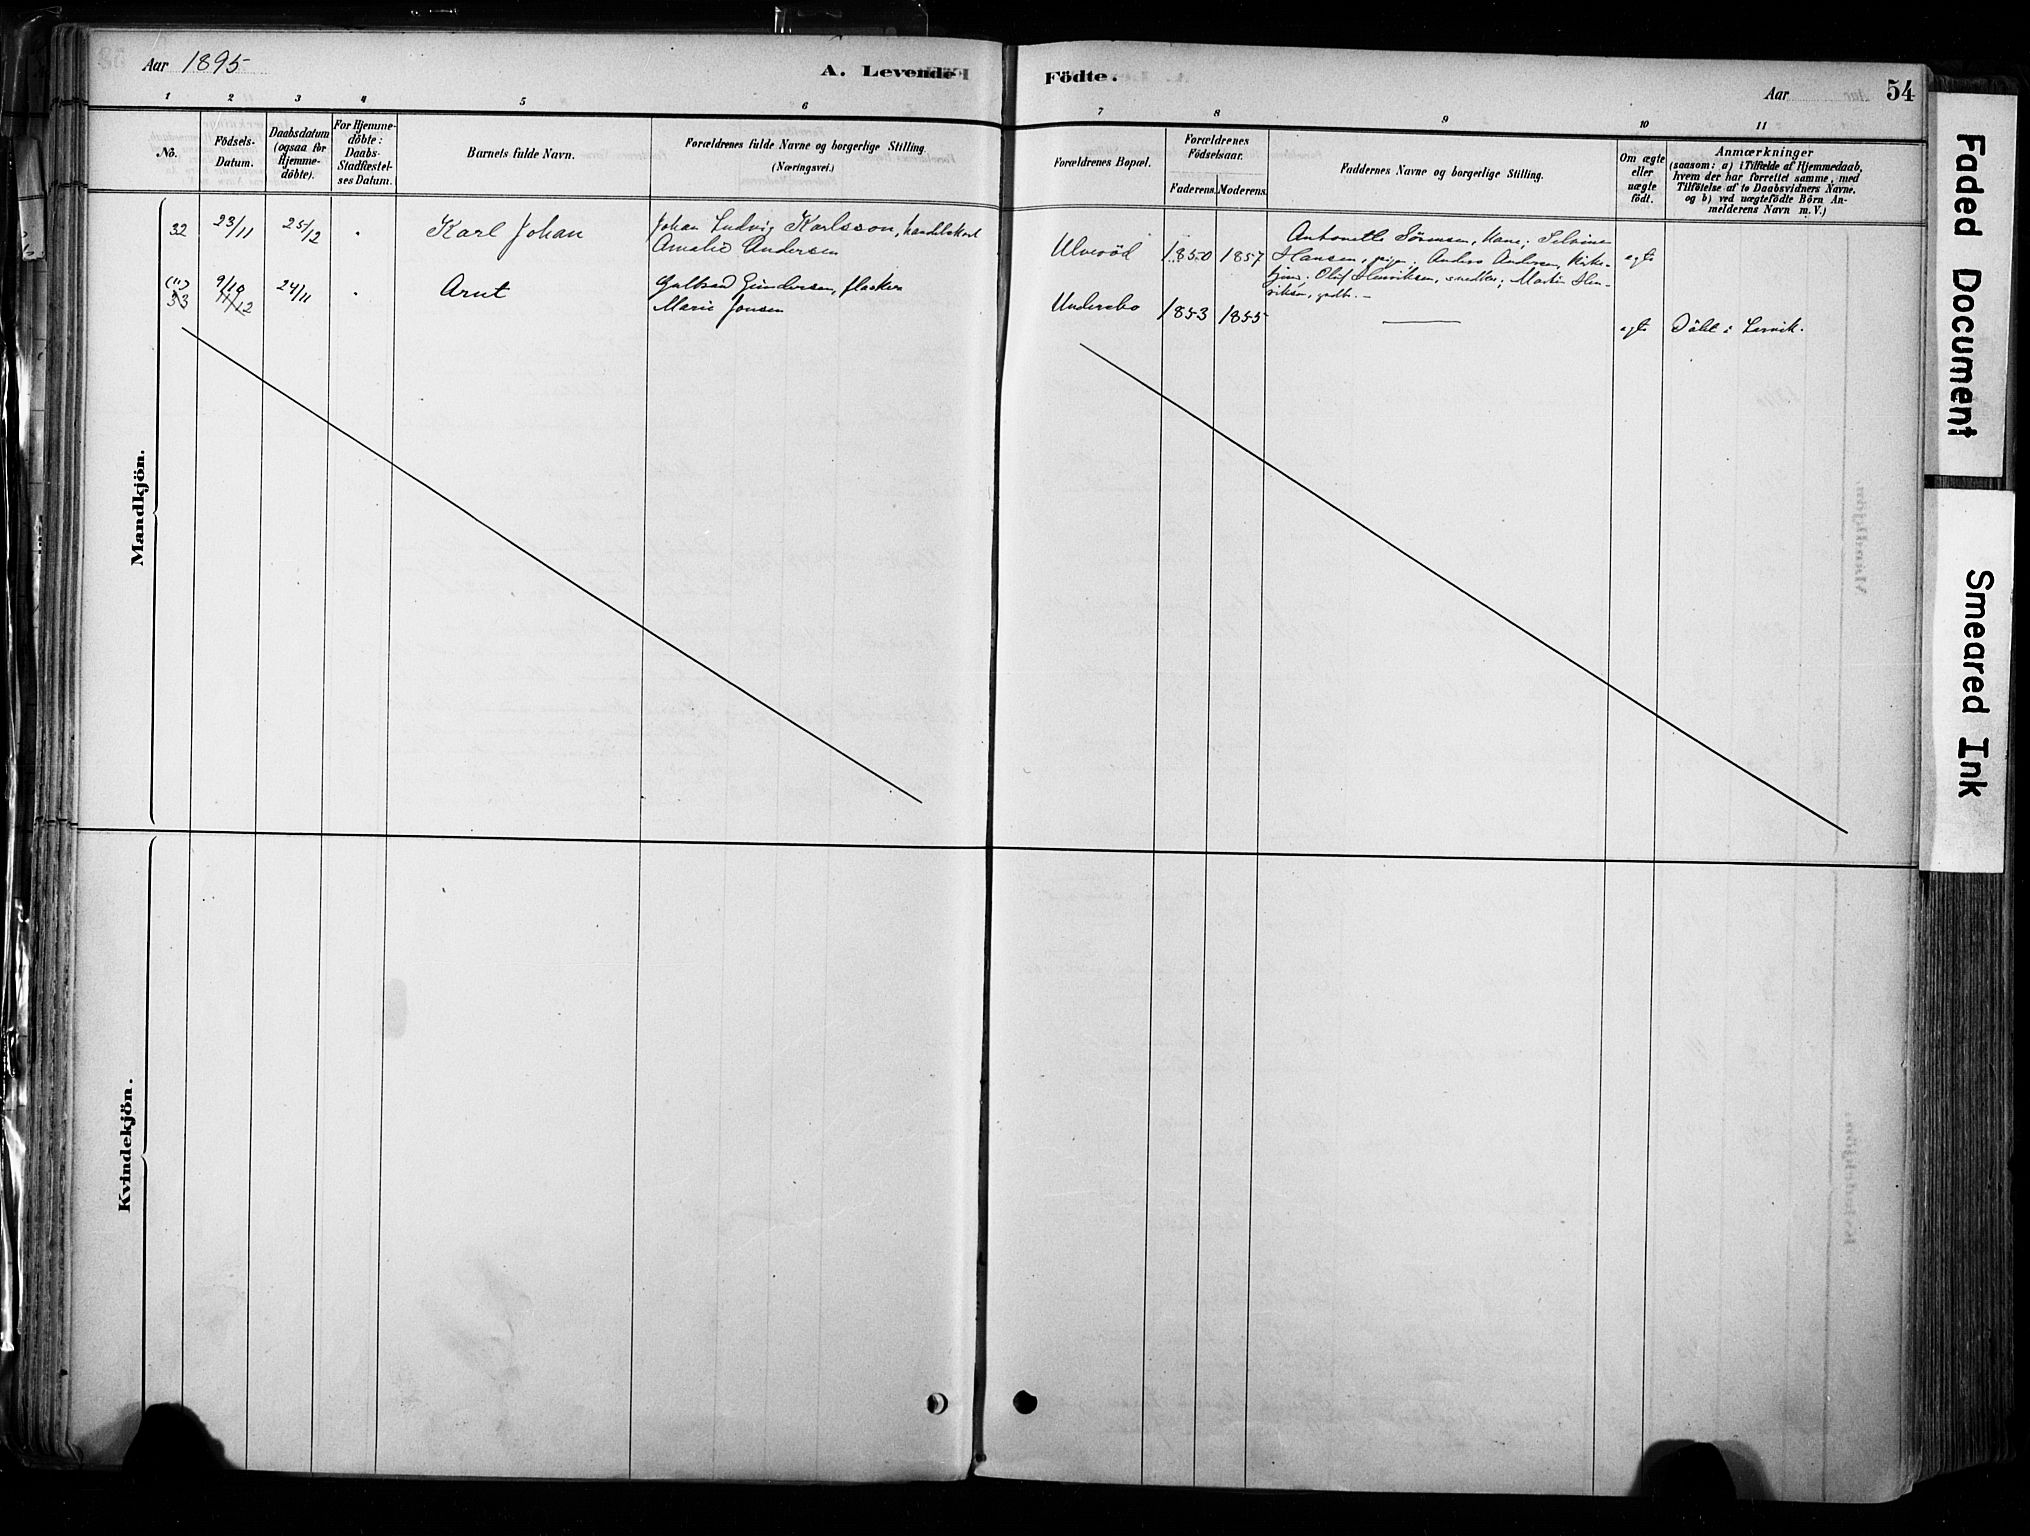 Aar 1895
A. Levende Födte.
Aar
54
1 2 3 4 5 6 7 8 9 10 11
No.
Födsels-Datum.
Daabsdatum (ogsaa for Hjemme-döbte).
For Hjemme-döbte: Daabs-Stadfæstel-ses Datum.
Barnets fulde Navn.
Forældrenes fulde Navne og borgerlige Stilling.
(Næringsvei.)
Forældrenes Bopæl.
Forældrenes Födselsaar.
Faderens. Moderens.
Faddernes Navne og borgerlige Stilling.
Om ægte eller uægte födt.
Anmærkninger
(saasom: a) i Tilfælde af Hjemmedaab,
hvem der har forrettet samme, med
Tilföielse af to Daabsvidners Navne.
og b) ved uægtefödte Börn An-
melderens Navn m. V.)
Mandkjön.
32 23/11 25/12 Karl Johan
Johan Ludvig Karlsson,
Amalie Andersen
Ulveröd 1850 1857
Antonette Sörensen, Kone; 
Hansen, pige; Anders Andersen, Kirke-
tjener; Oluf Henriksen, snedker; Martin Hen-
riksen, gdbr. —
egte
(11) 33 9/10 11/12 24/11 Arnt
Gulbrand Gundersen,
Marie Jonsen
Undersbo 1853 1855 — egte Döbt i Larvik.
Kvindekjön.
Faded Document
Smeared Ink